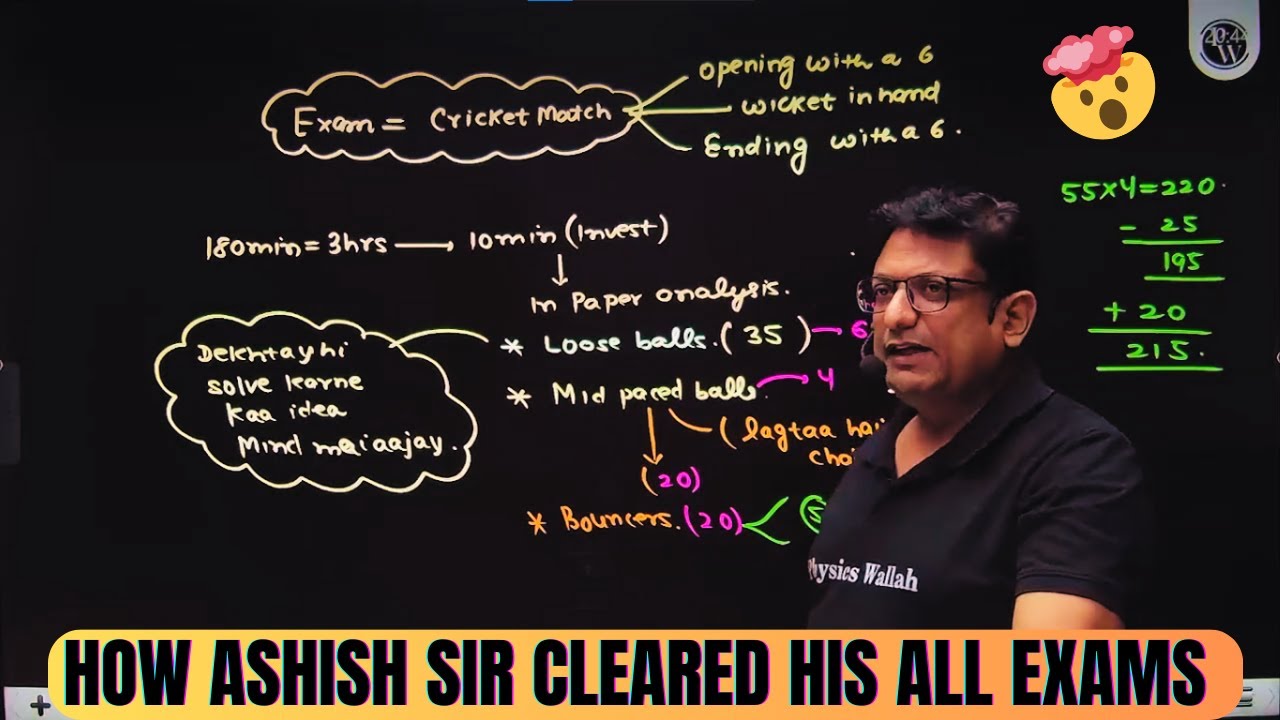 opening with a 6
Exam = Cricket Match
wicket in hand
Ending with a 6.
55x4=220
- 25
195
+ 20
215.
180min = 3hrs → 10min (Invest)
In Paper analysis.
* Loose balls. (35) → 6
* Mid paced balls. → 4
(lagtaa hai
(20)
* Bouncers. (20)
Dekhtay hi
solve karne
kaa idea
Mind mai aajay.
Physics Wallah
HOW ASHISH SIR CLEARED HIS ALL EXAMS